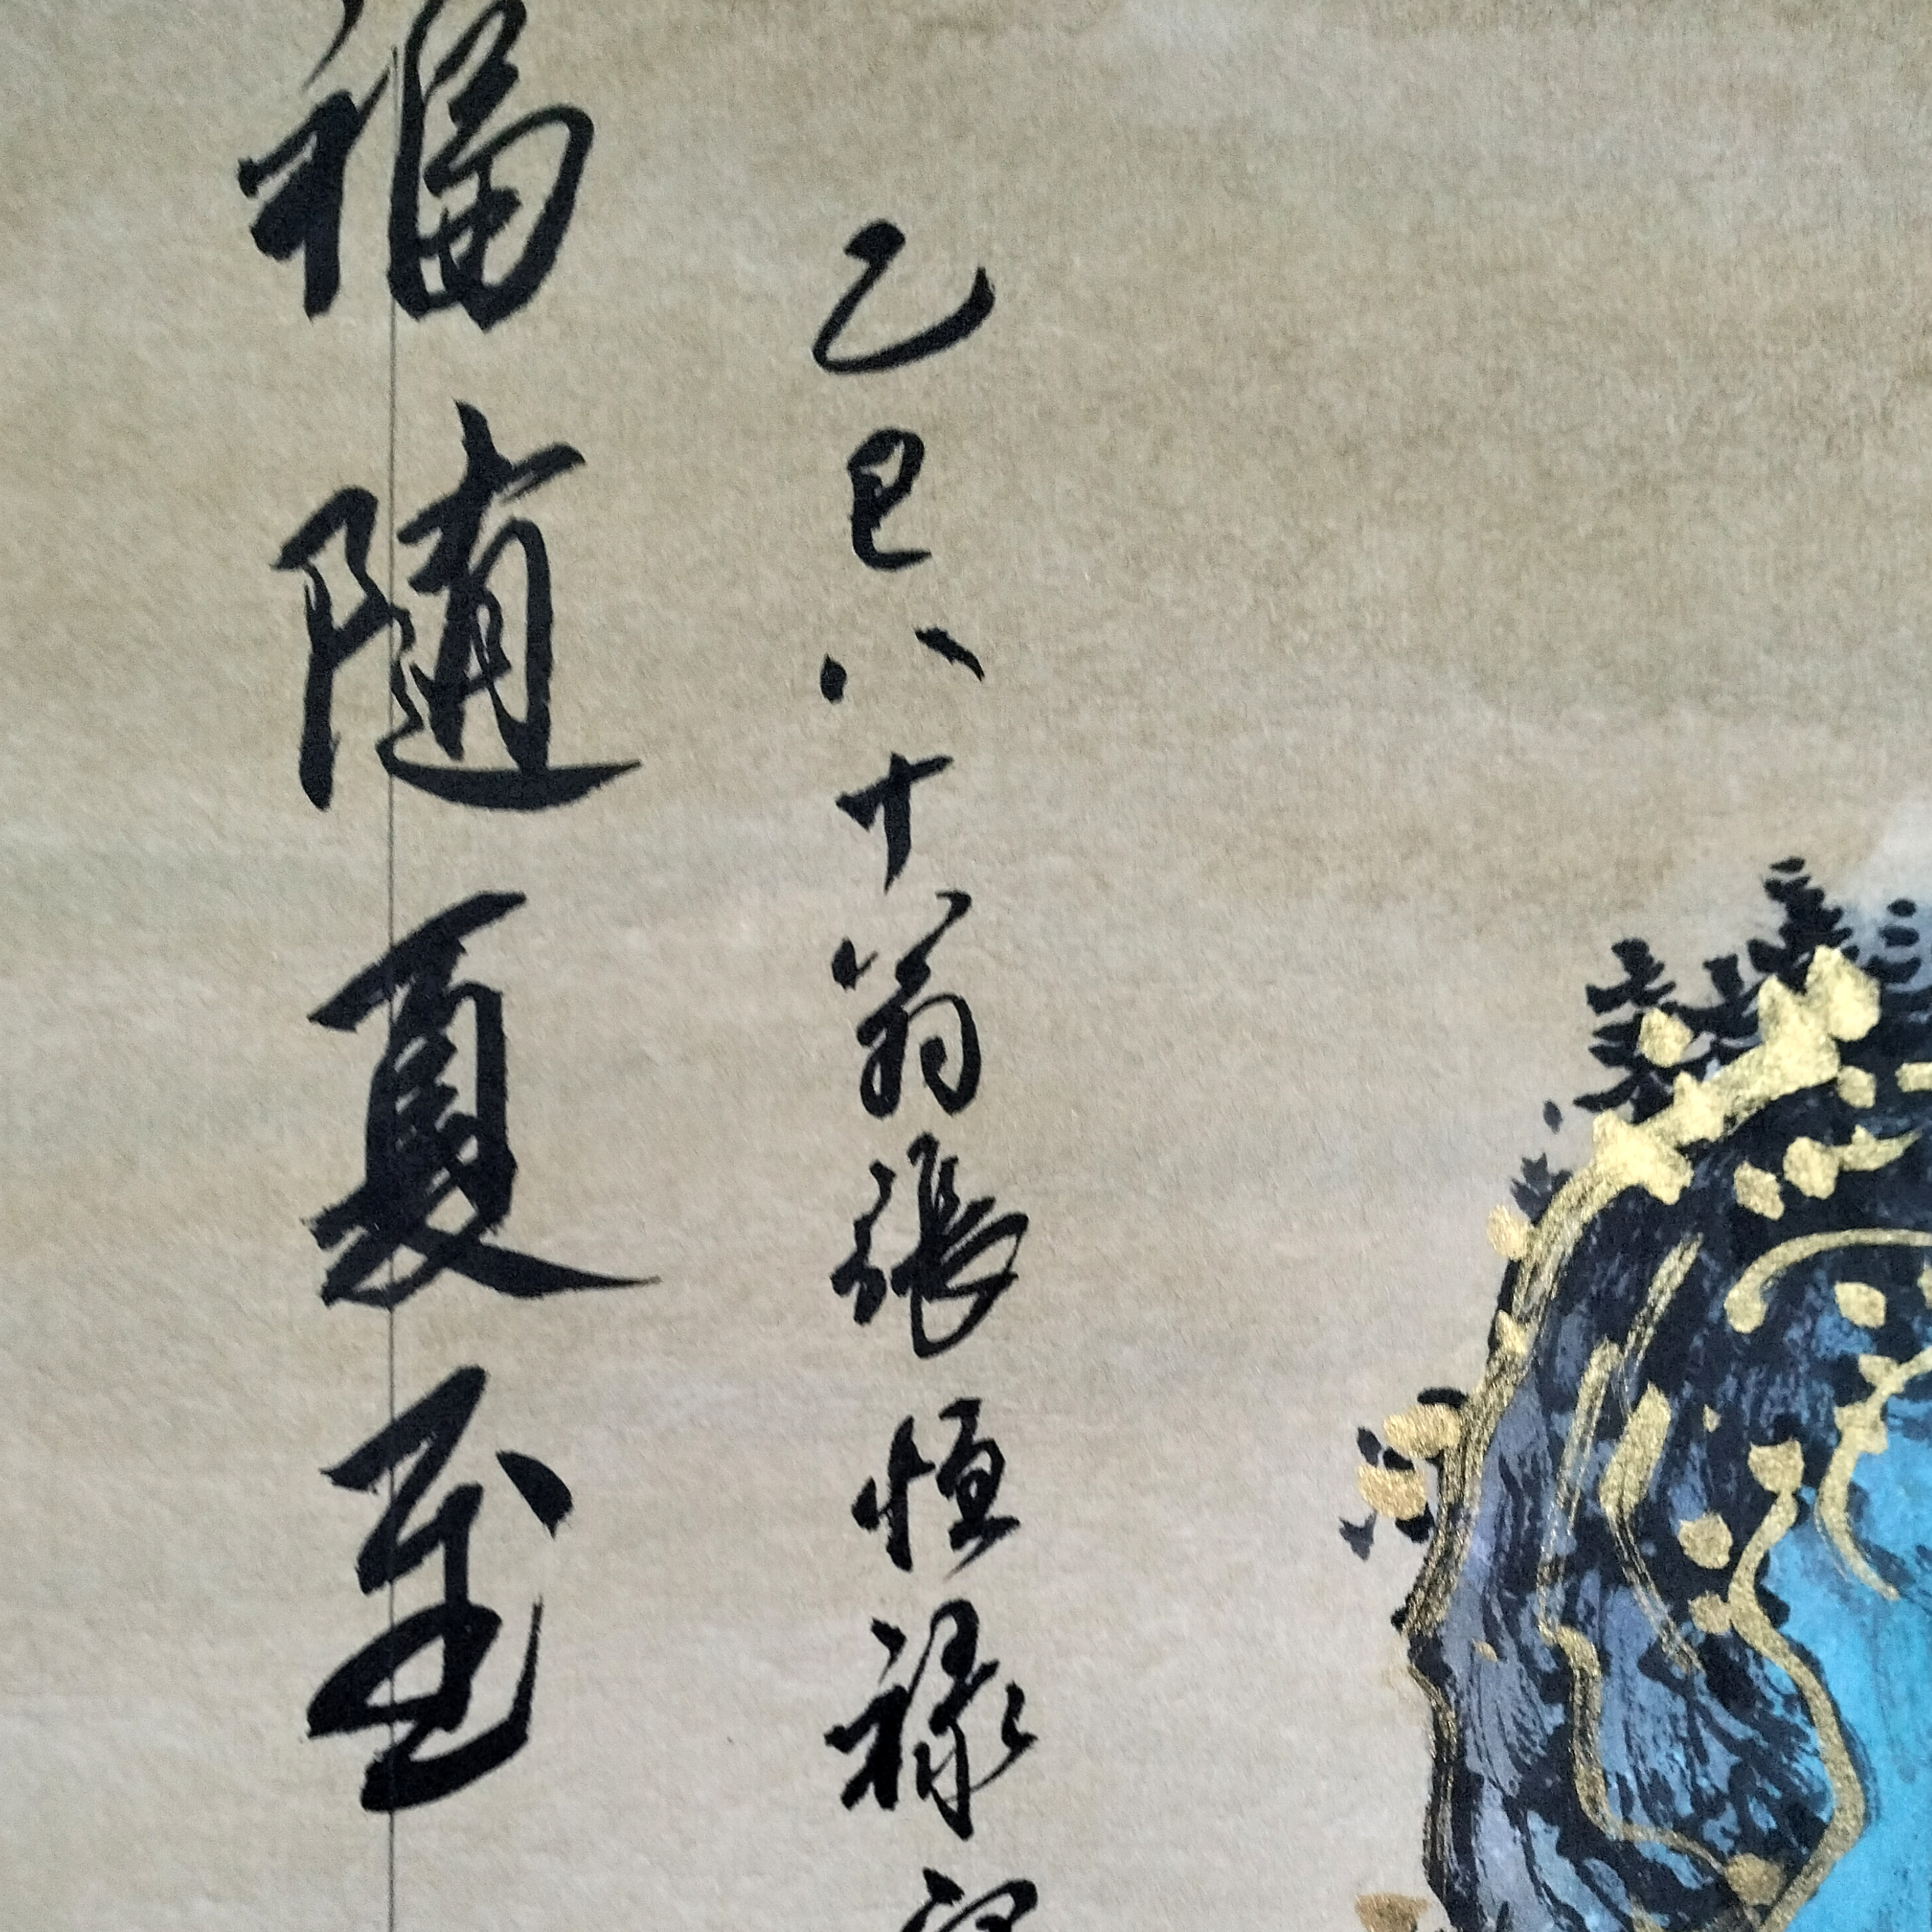 福随夏至
乙巳八十翁張恒禄